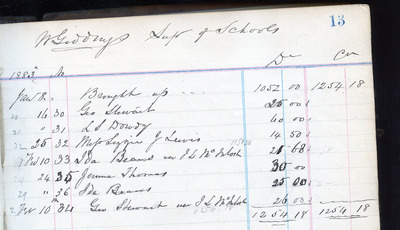 13
W Giddings Supt of Schools
Dr Cr
1883 No
Jany 8. Brought up ... 1052 00 1254 18
" 16 30 Geo Stewart 25 00
" 31 L S Dowdy 40 00
" 25 32 Miss Lizzie J Lewis 14 50
Feb 10 33 Ida Beard 21 68
24 35 Jennie Thomas 30 00
" 36 Ida Beard 25 00
Feb 10 34 Geo Stewart 20 00
1254 18 1254 18